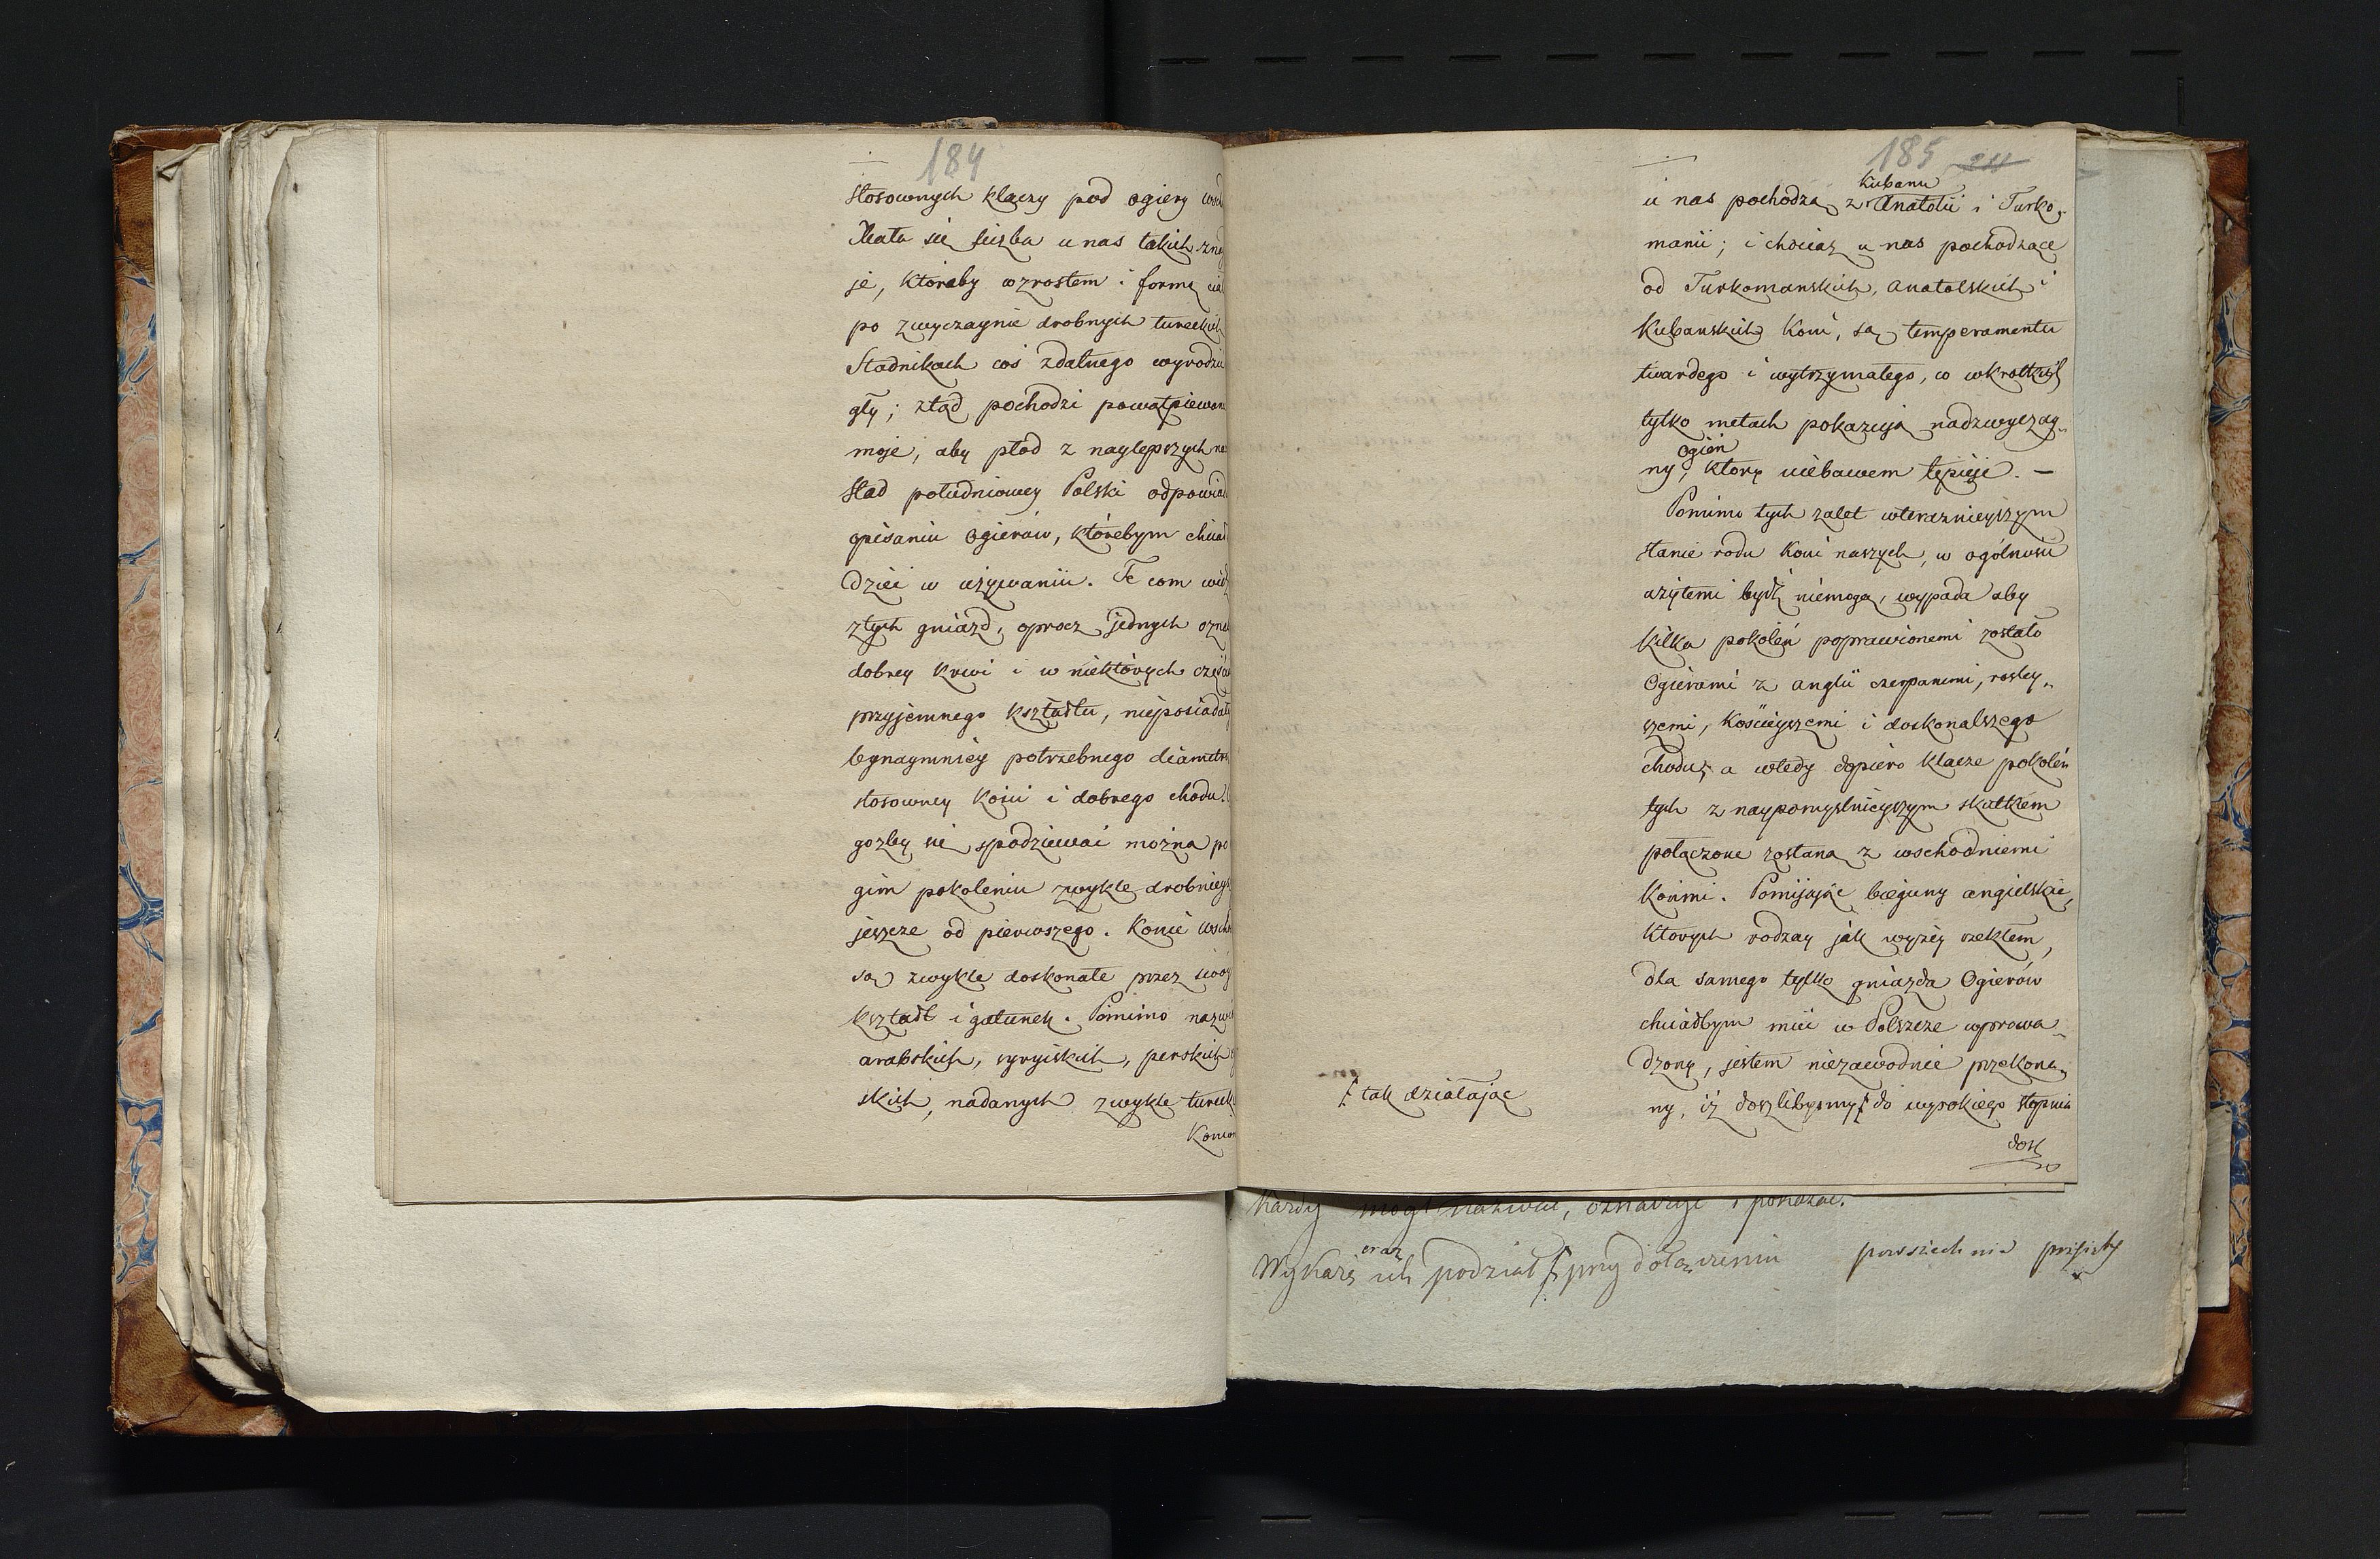 184
stosownych klaczy pod ogiery
Mała się liczba u nas takich
je, któreby wzrostem i formą
po zwyczaynie drobnych tureckich
Stadnikach coś zdatnego wyrodzić
gły; ztąd pochodzi powątpiewan
moje, aby płod z naylepszych na
Stad południowey Polski odpowiad
opisaniu Ogierów, którebym chciał
dzieć w używaniu. Te com wid
z tych gniazd, oprocz jednych ozna
dobrey krwi i w niektórych częśc
przyjemnego kształtu, nieposiadały
bynaymniey potrzebnego diametru
stosowney kości i dobrego chodu.
gożby się spodziewać można po
gim pokoleniu zwykle drobniey
jeszcze od pierwszego. Konie wsch
są zwykle doskonałe przez swóy
kształt i gatunek. Pomimo nazwi
arabskich, syryiskich, perskich
skich, nadanych zwykle tureck
Koniom
185 211
u nas pochodzą z Kubanu Anatolii i Turko„
manii; i chociaż u nas pochodzące
od Turkomanskich, anatolskich i
Kubanskich Koni, są temperamentu
twardego i wytrzymałego, co w krotkich
tylko metach pokazują nadzwyczay„
ny ogień, ktory niebawem tępieje. —
Pomimo tych zalet w teraznieyszym
stanie rodu Koni naszych, w ogólności
użytemi bydź niemogą, wypada aby
kilka pokoleń poprawionemi zostało
Ogierami z Anglii czerpanemi, rosley„
szemi, kościeyszemi i doskonalszego
chodu; a wtedy dopiero klacze pokoleń
tych z naypomyslnieyszym skutkiem
połączone zostaną z wschodniemi
Końmi. Pomijając bieguny angielskie,
ktorych rodzay jak wyżey rzekłem,
dla samego tylko gniazda Ogierów
chciałbym mieć w Polszcze wprowa„
dzony, jestem niezawodnie przekona„
ny, iż doszlibysmy do wysokiego stopnia
tak działając
dosk
Każdy mógł nazwać, oznaczyć i pokazać.
Wykażę oraz ich podział przy dołączeniu powszechnie przyjęty